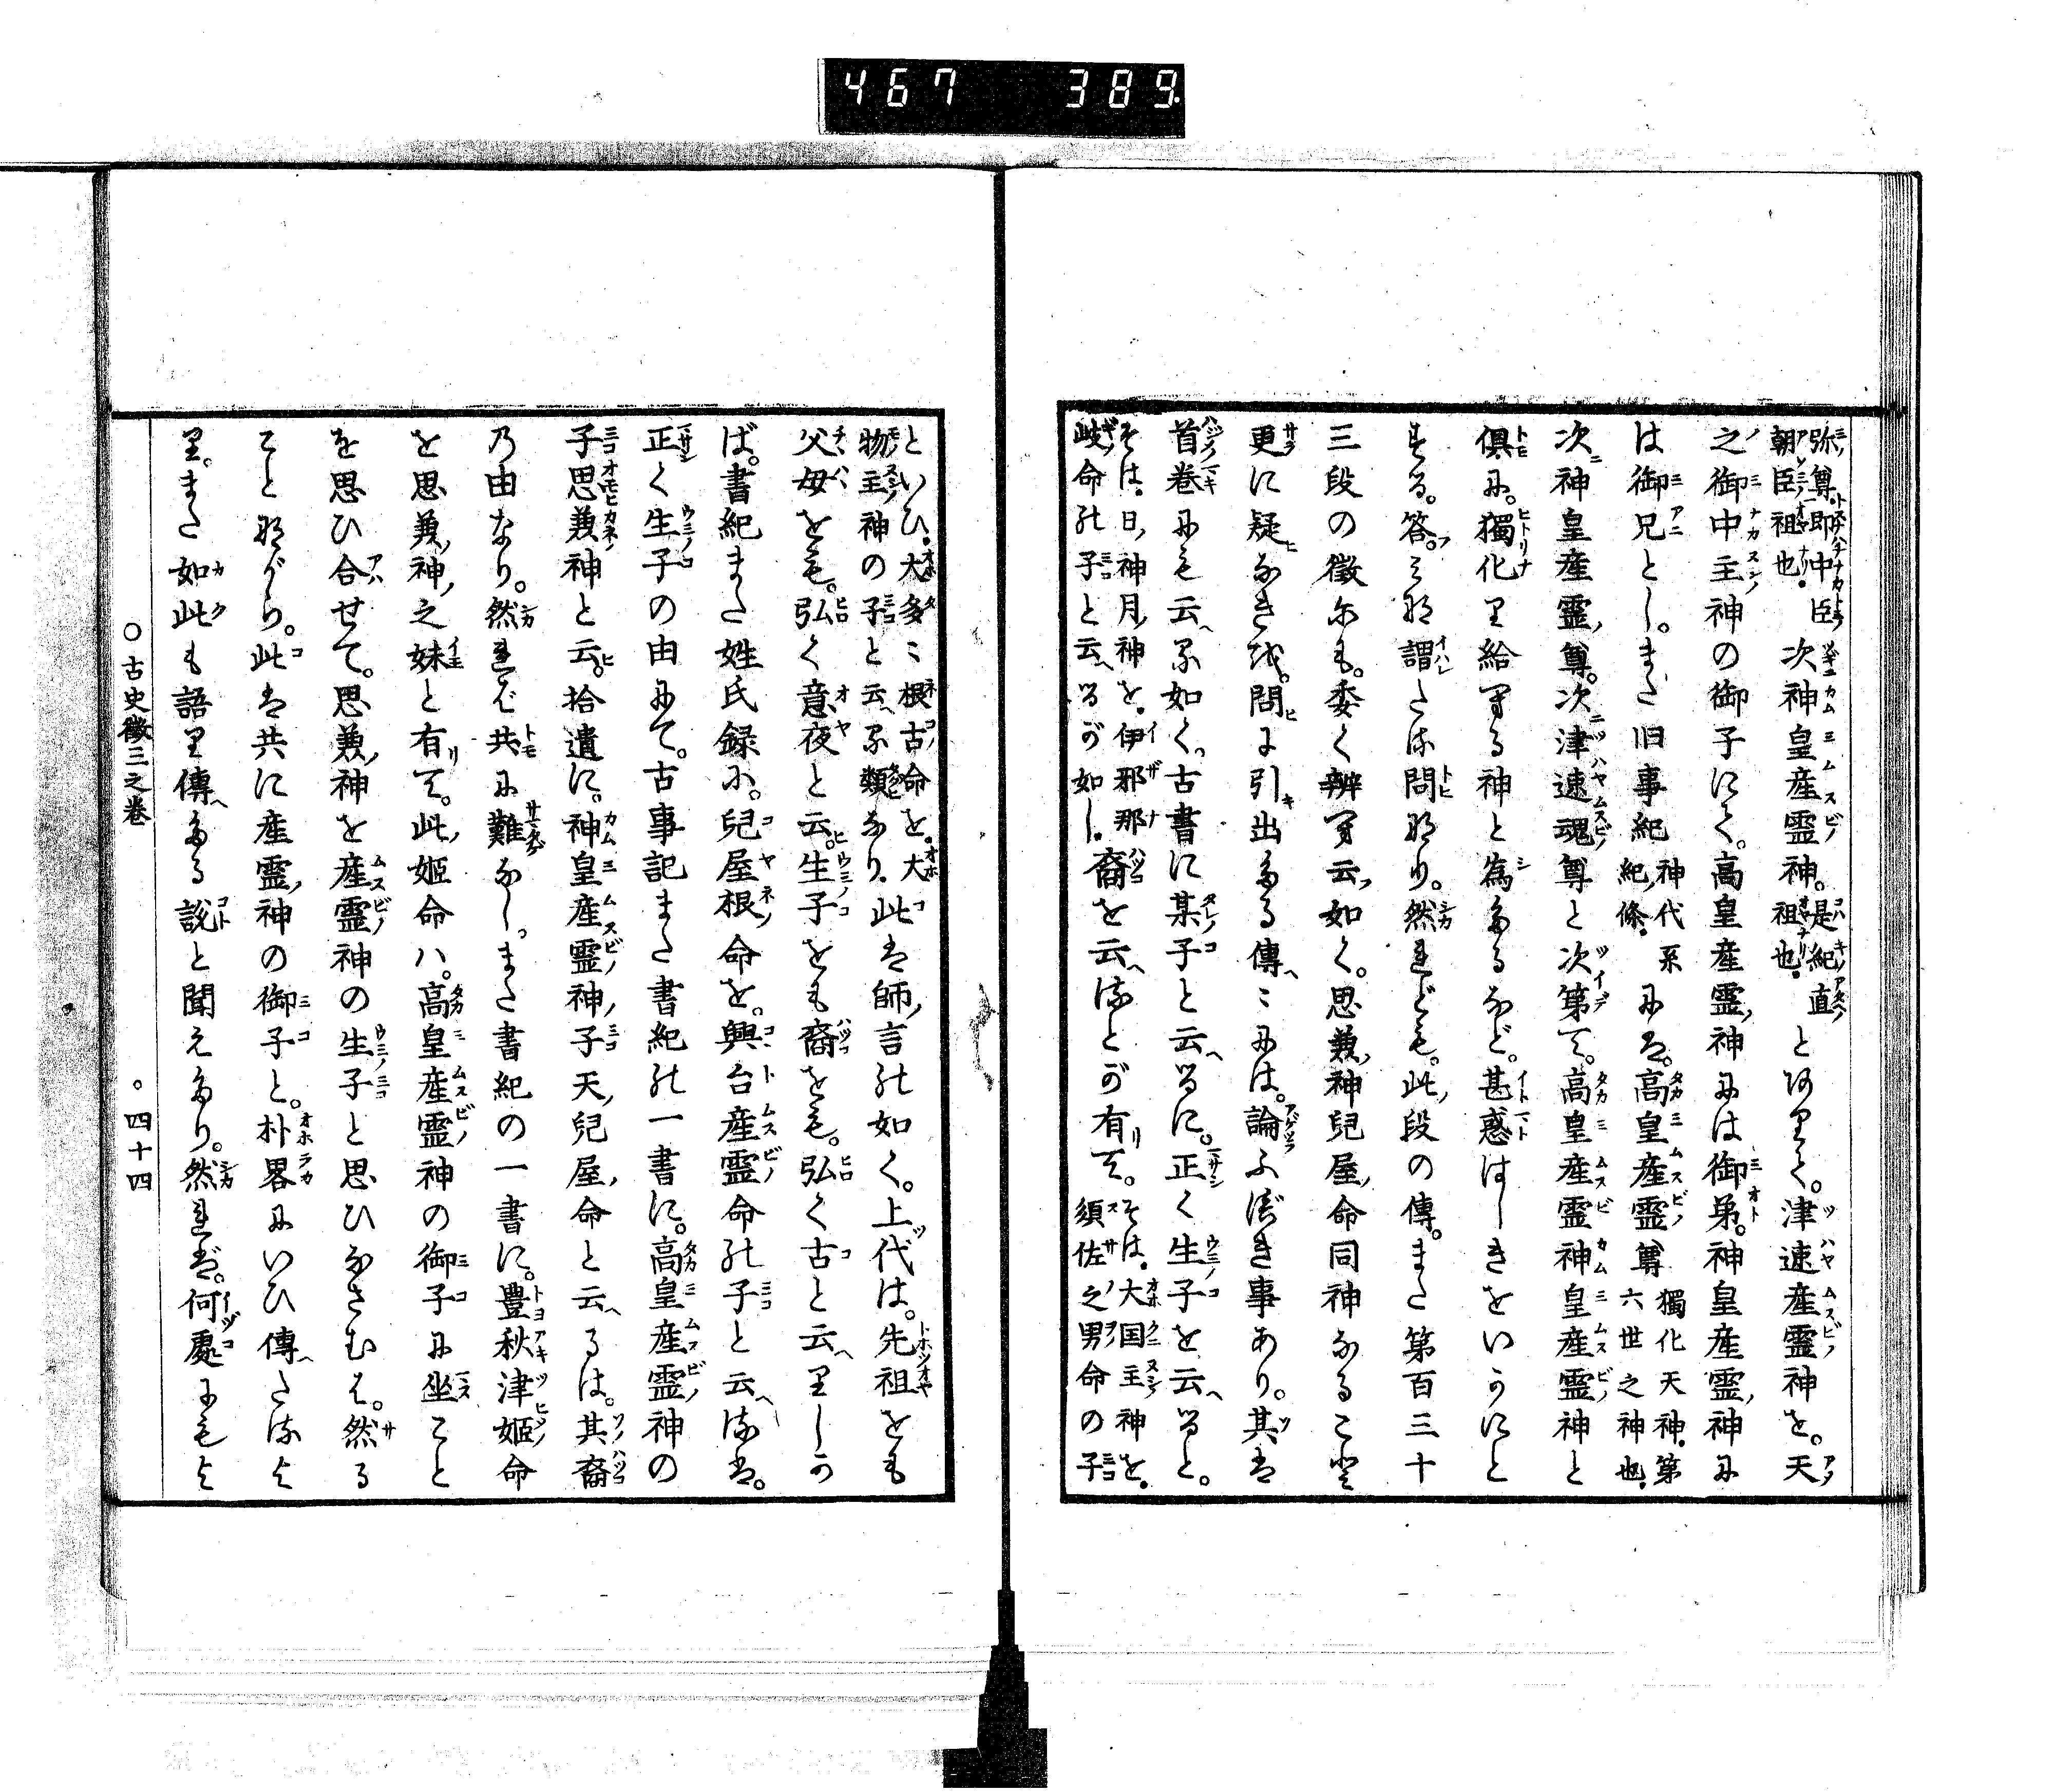 467 389
弥尊即中臣朝臣祖也。次神皇産霊神。是紀直祖也。とありて。津速産霊神を。天
之御中主神の御子にて。高皇産霊神には御弟。神皇産霊神に
は御兄とし。また旧事紀神代系紀條。には。高皇産霊尊獨化天神。第六世之神也。
次神皇産霊尊。次津速魂尊と次第て。高皇産霊神皇産霊神と
倶に。獨化り給へる神と為たるなど。甚惑はしきをいかにと
する。答。こは謂たる問なり。然れども。此段の傳。また第百三十
三段の徴にも。委く辨へ云如く。思兼神兒屋命同神なること
更に疑なき故。問に引出たる傳こには。論ふ べき事あり。其は
首巻にも云る如く。古書に某子と云へるに。正く生子を云へると。
そは。日神月神を。伊邪那岐命の子と云へるが如し。裔を云へるとが有て。そは。大国主神を。須佐之男命の子
といひ。大多々根古命を。大物主神の子と云る類なり。此は師言の如く。上代は。先祖をも
父母をも。弘く意夜と云。生子をも裔をも。弘く古と云へりしか
ば。書紀また姓氏録に。兒屋根命を。興台産霊命の子と云へるは。
正く生子の由にて。古事記また書紀の一書に。高皇産霊神の
子思兼神と云。拾遺に。神皇産霊神子天兒屋命と云へるは。其裔
の由なり。然れば共に難なし。また書紀の一書に。豊秋津姫命
を思兼神之妹と有て。此姫命ハ。高皇産霊神の御子に坐こと
を思ひ合せて。思兼神を産霊神の生子と思ひなさむは。然る
ことながら。此は共に産霊神の御子と。朴畧にいひ傳たるよ
り。また如此も語り傳たる説と聞えたり。然れば。何處にもよ
○古史徴三之巻 ○四十四